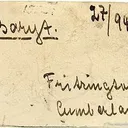 Baryt.
27/94
Frizington
Cumberla